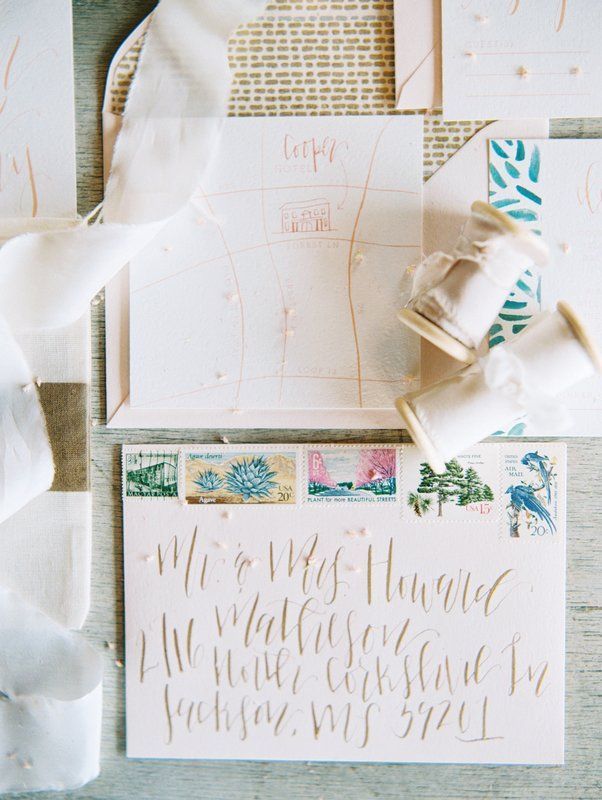 Cooper
HOTEL
FOREST LN
Agave deserti
Agave
USA
20c
6c
PLANT for more BEAUTIFUL STREETS
WHITE PINE
USA 15c
AIR MAIL
20c
Mr. & Mrs. Howard
Matheson
2116 North Corkshire Ln
Jackson, MS 39201